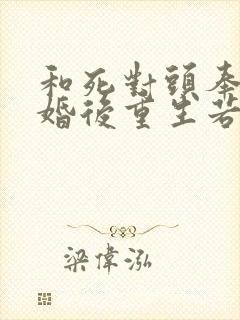 和死對頭奉
婚後重生若
梁偉泓